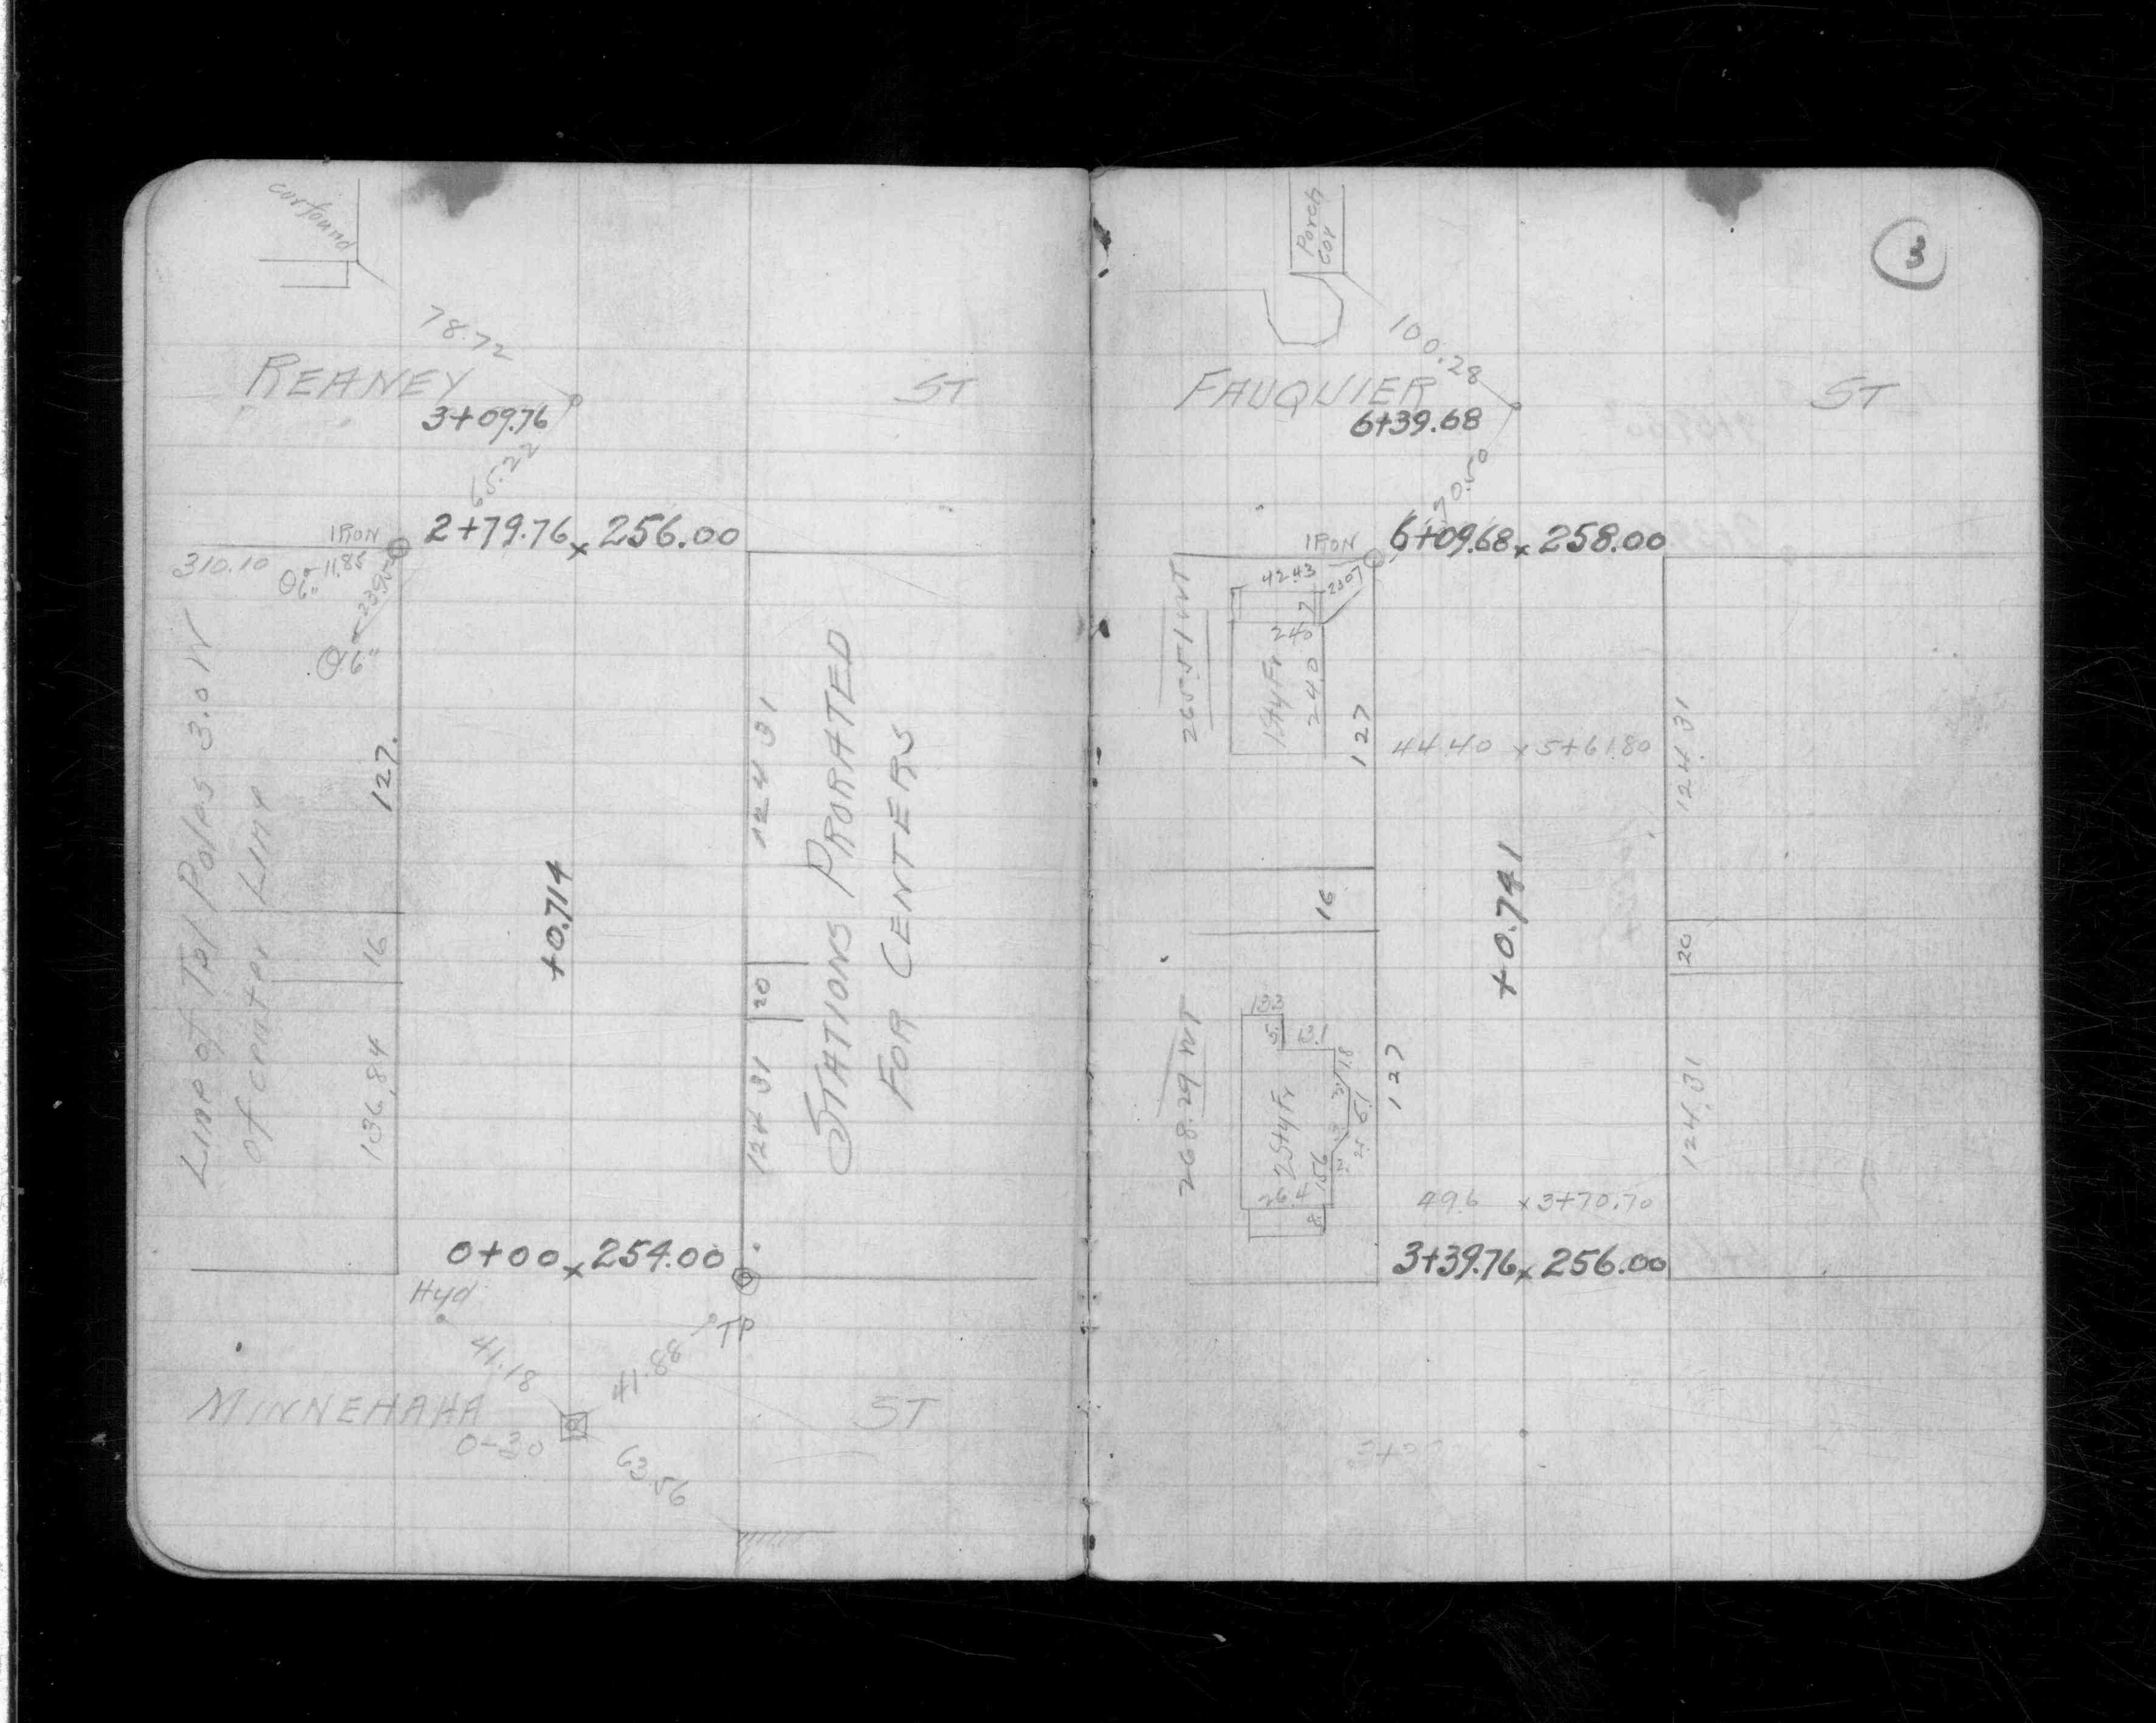 cor found
78.72
REANEY ST
3+09.76
65.22
IRON
2+79.76 x 256.00
310.10
6" 11.85
6" 23.95
Line of Tel Poles 3.0 W
of center Line
127.
16
136.84
+0.714
124 31
20
124 31
STATIONS PRORATED
FOR CENTERS
0+00 x 254.00
Hyd
TP
41.18
41.88
MINNEHAHA ST
0-30
63.56
3
Porch
cor
100.28
FAUQUIER ST
6+39.68
70.50
IRON
6+09.68 x 258.00
42.43
23.07
7
240
240
1StyFr
265.51 WT
127
44.40 x 5+61.80
124.31
16
+0.741
20
13.3
5.
13.1
11.8
6.1
2StyFr
15.6
26.4
8.
268.29 WT
127
124.31
49.6 x 3+70.70
3+39.76 x 256.00